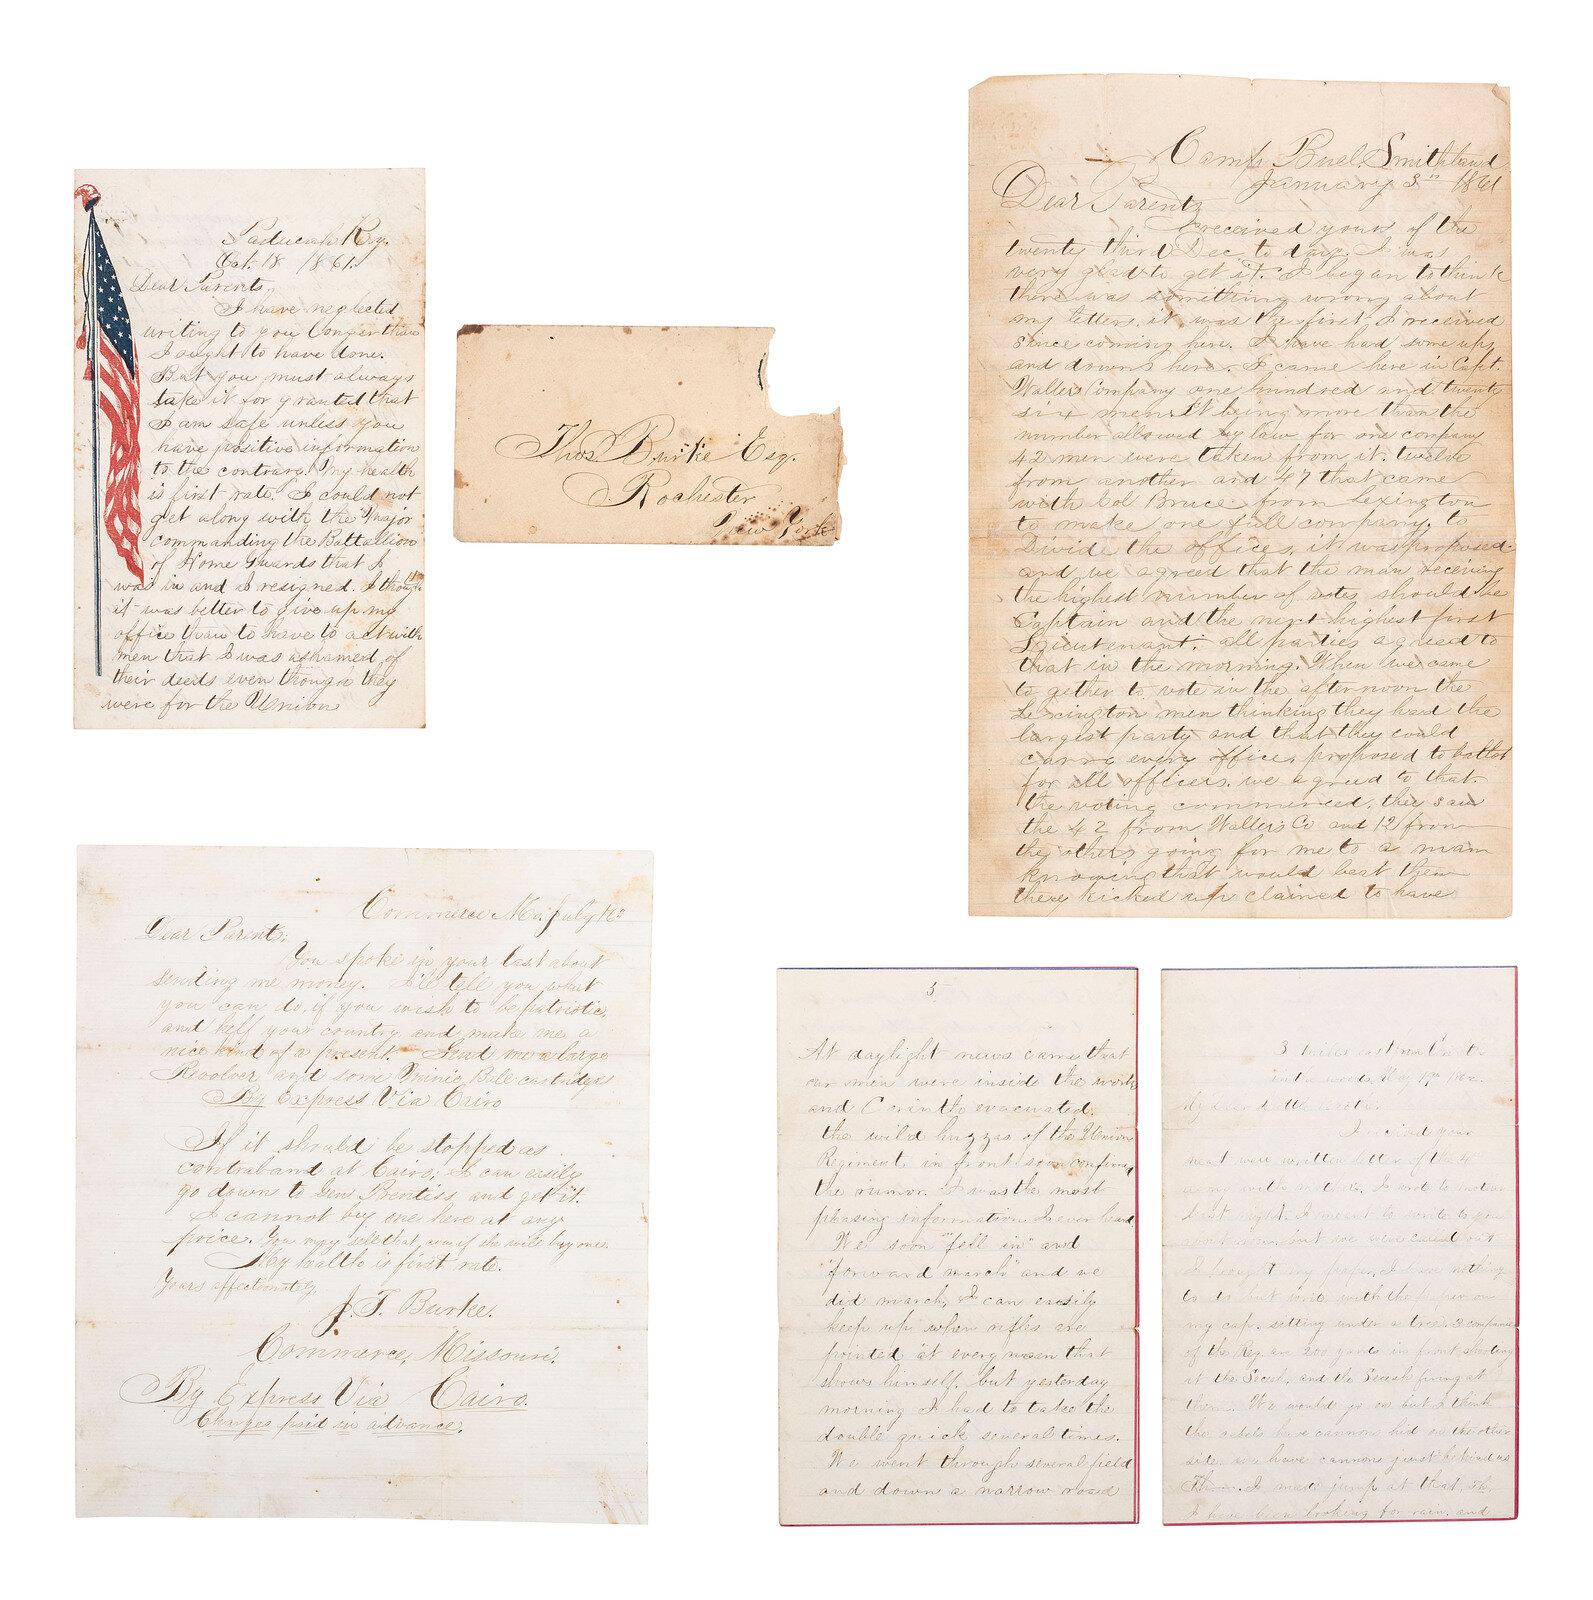 Paducah Ky.
Oct. 18 1861.
Dear Parents,
I have neglected
writing to you longer than
I ought to have done.
But you must always
take it for granted that
I am safe unless you
have positive information
to the contrary. My health
is first rate. I could not
get along with the Major
commanding the Battallion
of Home Guards that I
was in and I resigned. I thought
it was better to give up my
office than to have to act with
men that I was ashamed of
their deeds even though they
were for the Union
Thos Burke Esq.
Rochester
New York
Camp Buel Smithland
January 3rd 1861
Dear Parents
I received yours of the
twenty third Dec to day. I was
very glad to get it. I began to think
there was something wrong about
my letters, it was the first I received
since coming here. I have had some ups
and downs here. I came here in Capt.
Wallers Company one hundred and twenty
six men. It being more than the
number allowed by law for one company
42 men were taken from it. twelve
from another and 47 that came
with Col Bruce from Lexington
to make one full company, to
Divide the offices, it was proposed
and we agreed that the man receiving
the highest number of votes should be
Captain and the next highest first
Lieutenant. all parties agreed to
that in the morning. When we came
to gether to vote in the afternoon the
Lexington men thinking they had the
largest party and that they could
carry every office, proposed to ballot
for all officers. we agreed to that.
the voting commenced. they saw
the 42 from Wallers Co and 12 from
the others going for me to a man
knowing that would beat them
they kicked up claimed to have
Commerce Mo. July
Dear Parents;
You spoke in your last about
sending me money. I'll tell you what
you can do, if you wish to be patriotic,
and help your country and make me a
nice kind of a present. Send me a large
Revolver and some Minie Ball cartridges
By Express Via Cairo
If it should be stopped as
contraband at Cairo, I can easily
go down to Gen Prentiss, and get it.
I cannot buy one here at any
price. You may sell that, if she will buy one.
My health is first rate.
Yours affectionately,
J. T. Burke.
Commerce, Missouri.
By Express Via Cairo.
Charges paid in advance.
5
At daylight news came that
our men were inside the works
and Corinth evacuated.
the wild huzzas of the Union
Regiment in front soon confirmed
the rumor. It was the most
pleasing information I ever heard
We soon "fell in" and
"forward march" and we
did march, I can easily
keep up when rifles are
pointed at every man that
shows himself, but yesterday
morning I had to take the
double quick several times.
We went through several field
and down a narrow road
3 miles
in the woods May 1862.
My dear little
I received your
neat were written letter of the 4
I wrote to
last night. I meant to write to you
but we were
I brought my paper, I have nothing
to do but write with the paper on
my cap, sitting under a tree. 3 companies
of the Reg are 200 yards in front shooting
at the Secesh, and the Secesh firing at
them. We would go on but I think
the rebels have cannons hid on the other
side. we have cannons just behind us
I made jump at that,
I have been looking for rain, and